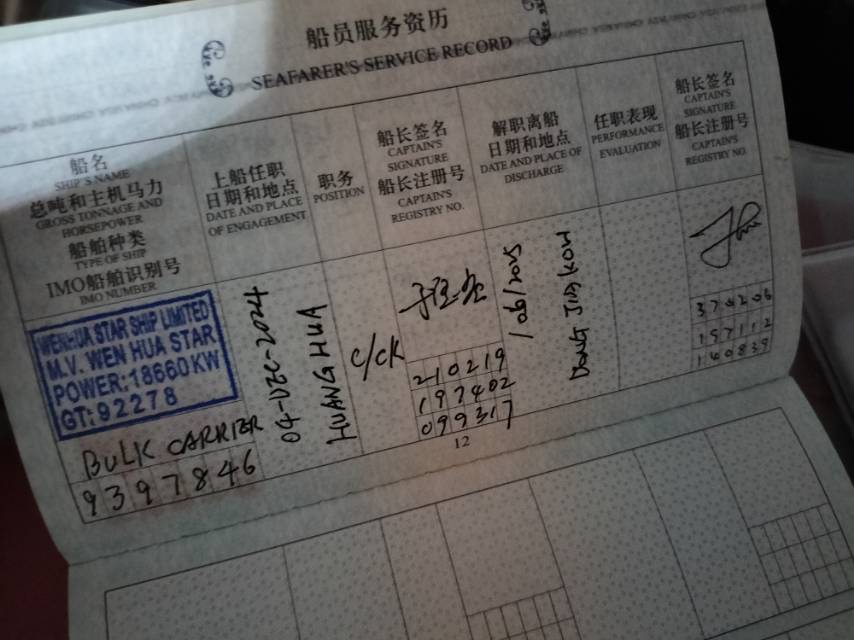 船员服务资历
SEAFARER'S SERVICE RECORD
船名
SHIP'S NAME
总吨和主机马力
GROSS TONNAGE AND
HORSEPOWER
船舶种类
TYPE OF SHIP
IMO船舶识别号
IMO NUMBER
上船任职
日期和地点
DATE AND PLACE
OF ENGAGEMENT
职务
POSITION
船长签名
CAPTAIN'S
SIGNATURE
船长注册号
CAPTAIN'S
REGISTRY NO.
解职离船
日期和地点
DATE AND PLACE OF
DISCHARGE
任职表现
PERFORMANCE
EVALUATION
船长签名
CAPTAIN'S
SIGNATURE
船长注册号
CAPTAIN'S
REGISTRY NO.
WENHUA STAR SHIP LIMITED
M.V. WEN HUA STAR
POWER:18660KW
GT:92278
BULK CARRIER
9397846
04-DEC-2024
HUANG HUA
C/CK
210219
197402
099317
/06/2025
DONG JIA KOU
374206
157112
140839
12